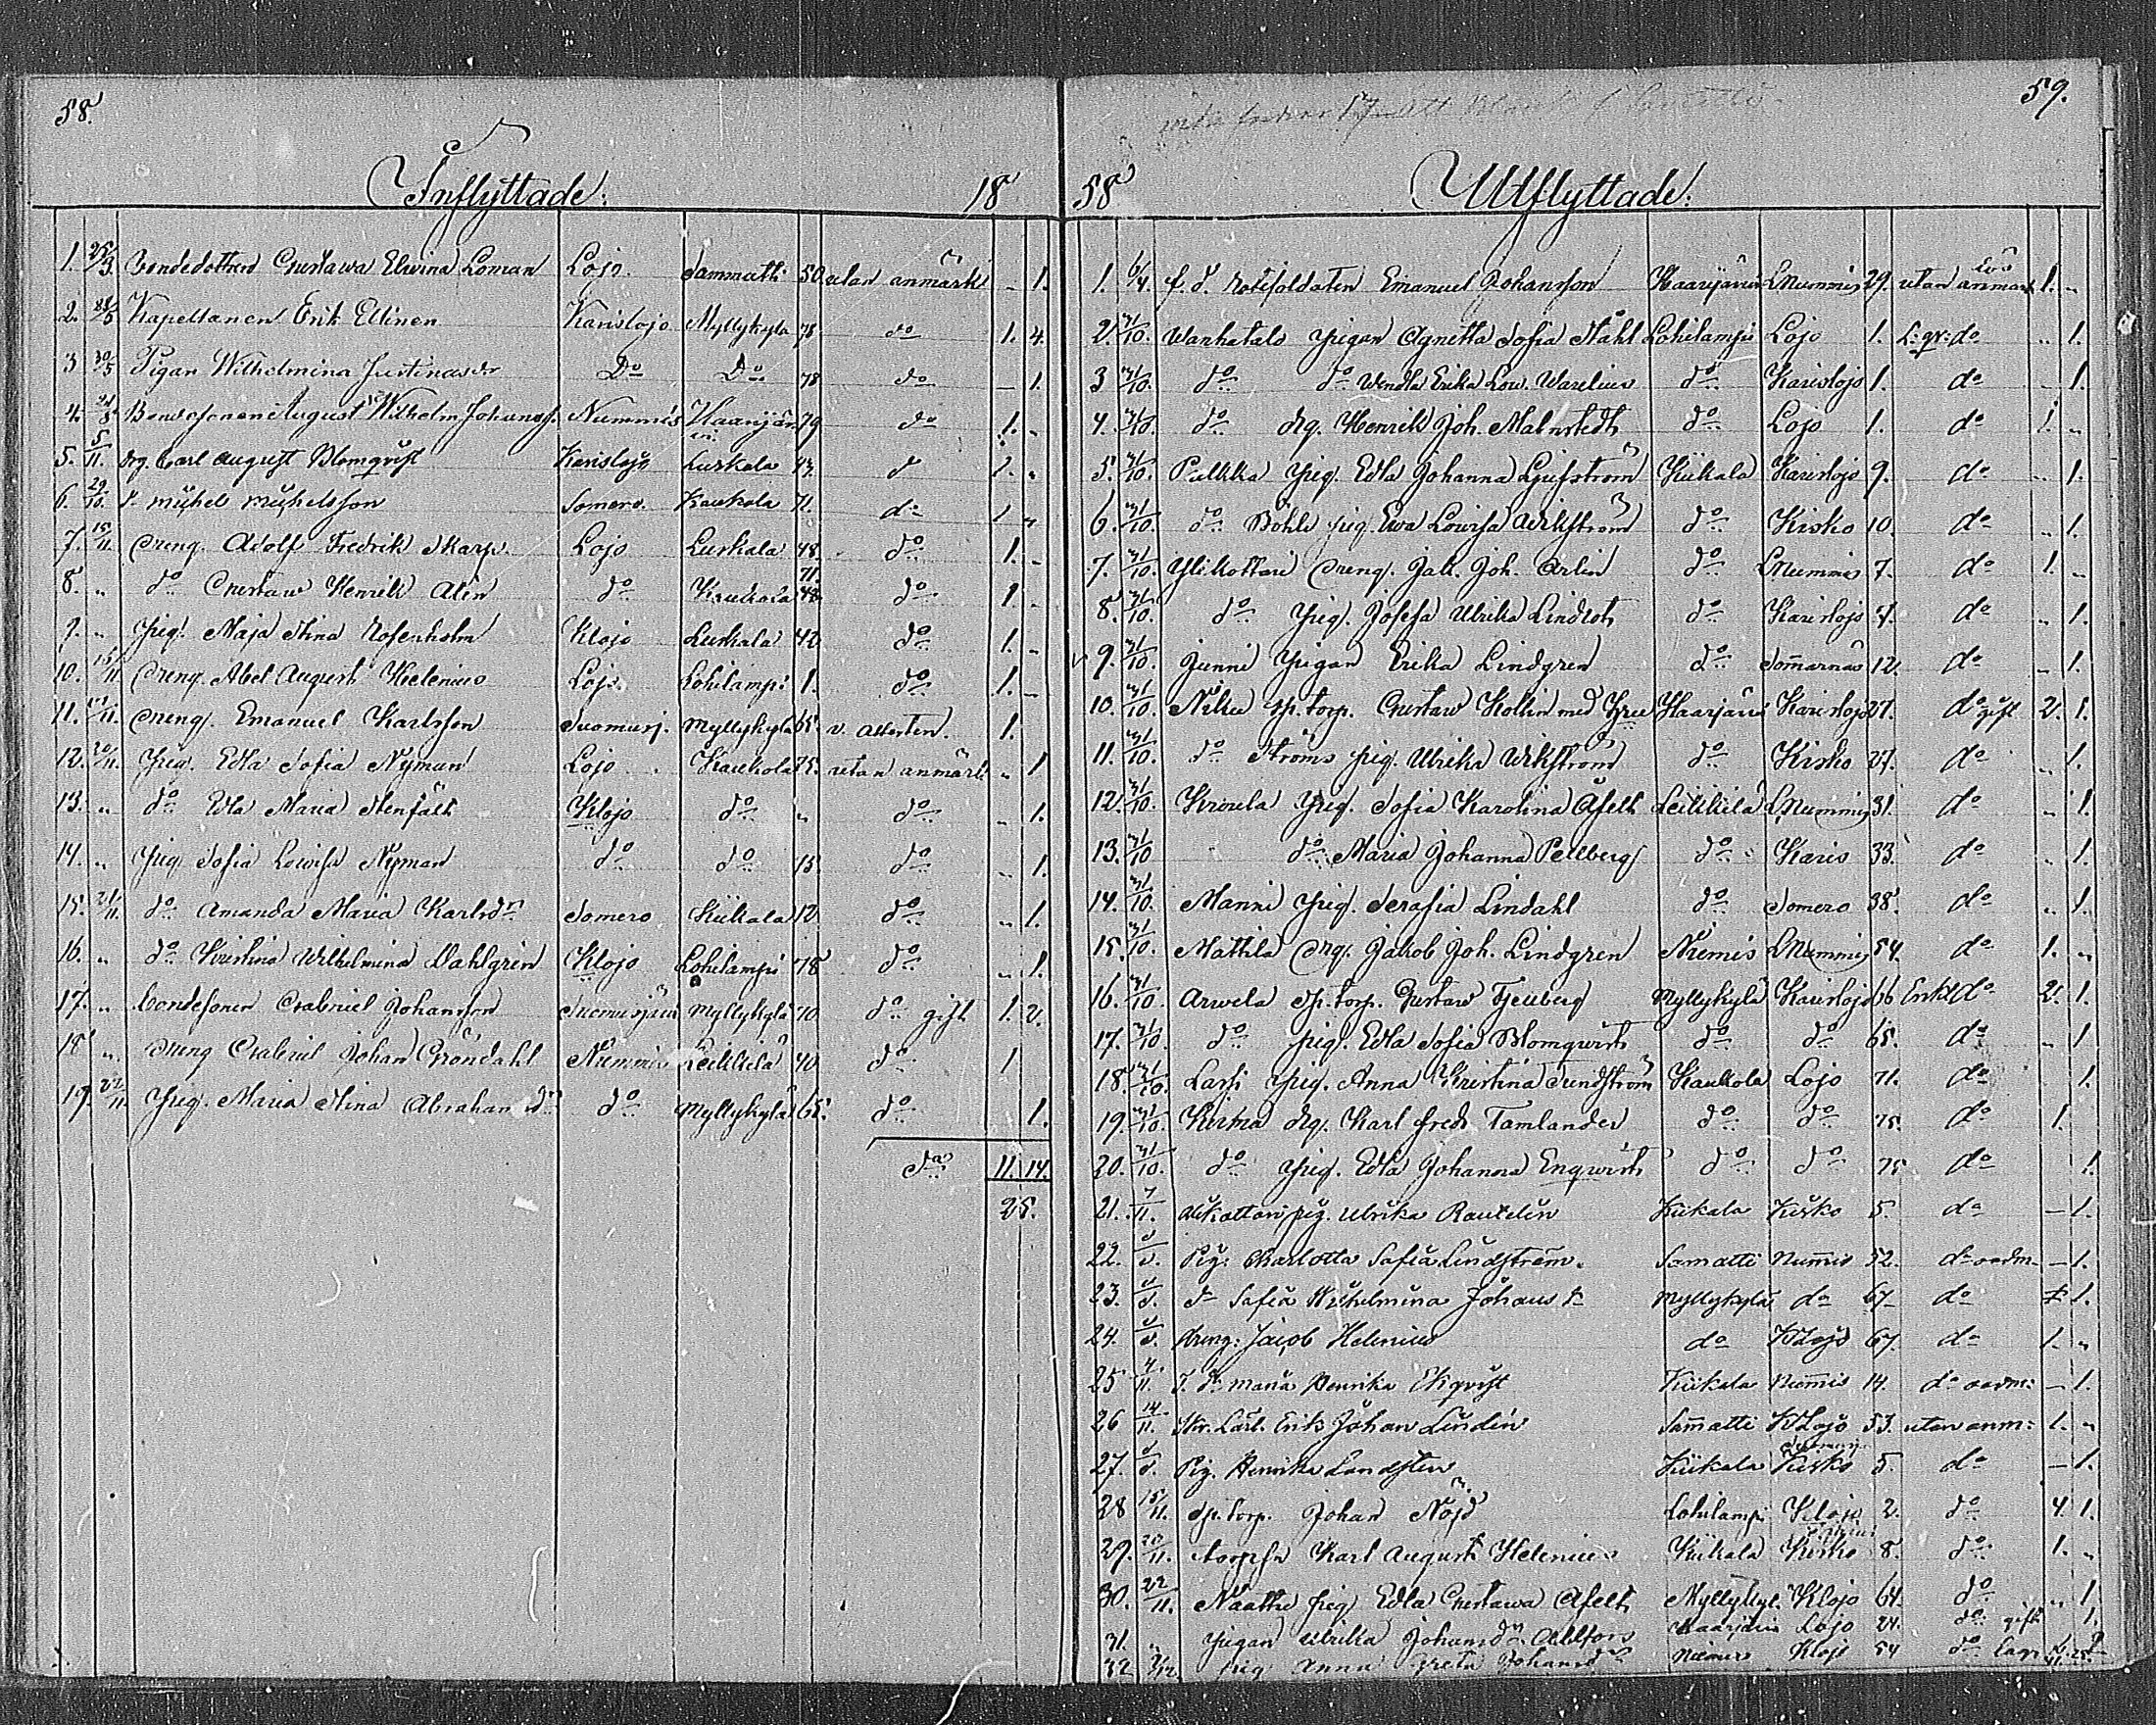 58.
Inflyttade: 18
1. 25/3. Bondedottren Gustawa Elwina Loman Lojo Sammatti 50 utan anmärk – 1.
2. Kapellanen Erik Ellinen Karislojo Myllykylä 78 do 1. 4.
3 30/5 Pigan Wilhelmina Justinasdr Do Do 78 do – 1.
4. Bondesonen August Wilhelm Johanss. Nummis Haarijärvi 79 do 1. „
5. 5/11. Drg. Carl August Blomqvist Karislojo Luskala 43. d 1. „
6. 29/10. Michel Michelsson Somero. Kaukola 71. do 1 „
7. 15/11. Dreng. Adolf Fredrik Skarp. Lojo Luskala 48. do 1. „
8. „ do Gustaw Henrik Alin do Kaukola 71. do 1. „
9. „ Pig. Maja Stina Rosenholm Klojo Luskala 42 do 1. „
10. 15/11 Dreng. Abel August Helenius Lojo. Lohilampi 1. do 1. „
11. 17/11. Dreng. Emanuel Karlsson Suomusj. Myllykylä 65. v. attesten. 1.
12. 20/11. Pig. Edla Sofia Nyman Lojo Kaukola 75. utan anmärk „ 1
13. „ do Edla Maria Stenfält Klojo do „ do „ 1.
14. „ Pig Sofia Lowisa Nyman do do 75. do „ 1.
15. 21/11. do Amanda Maria Karlsdr Somero Kiikala 12 do „ 1.
16. „ do Kristina Wilhelmina Dahlgren Klojo Lohilampi 78 do „ 1.
17. „ Bondesonen Gabriel Johansson Suomusjärvi Myllykylä 70 do gift 1. 2.
18 „ Dreng Gabriel Johan Gröndahl Nummis Leikkilä 40 do 1
19. 22/11 Pig. Maria Stina Abrahamsdr do Myllykylä 65. do 1.
Sa 11. 14.
25.
59.
58 Utflyttade:
1. 6/4. f. d. Rotesoldaten Emanuel Johansson Haarijärvi LNummis 29. utan anmärk 1. „
2. 31/10. Wanhatalo Pigan Agnetta Sofia Ståhl Lohilampi Lojo 1. L: gr: do „ 1.
3 31/10. do do Wendla Erika Low. Warelius do Karislojo 1. do „ 1.
4. 31/10. do drg. Henrik Joh. Malmstedt do Lojo 1. do 1. „
5. 31/10. Pulkka Pig. Edla Johanna Ljufström Kiikala Karislojo 9. do „ 1.
6. 31/10. do Böhle Pig. Ewa Lowisa Wikström do Kisko 10. do „ 1.
7. 31/10. Ylikottari Dreng. Jak. Joh. Arlin do LNummis 7. do 1. „
8. 31/10. do Pig. Josefa Ulrika Lindlöf do Karislojo 7. do „ 1.
9. 31/10. Junni Pigan Erika Lindgren do Sommarnäs 12. do „ 1.
10. 31/10. Niku sp. torp. Gustaw Kollin med Hru Haarjärvi Karislojo 27. do gift 2. 1.
11. 31/10. do Ströms Pig. Ulrika Wikström do Kisko 27. do „ 1.
12. 31/10. Krouvla Pig. Sofia Karolina Afelt Leikkilä LNummis 31. do „ 1.
13. 31/10 do Maria Johanna Pellberg do Karis 33. do „ 1.
14. 31/10. Manni Pig. Serafia Lindahl do Somero 38. do „ 1.
15. 31/10. Mattila Drg. Jakob Joh. Lindgren Niemis LNummis 54. do 1. „
16. 31/10. Arwela sp. torp. Gustaw Tjeuberg Myllykylä Karislojo 66 Enkl do 2. 1.
17. 31/10. do Pig. Edla Sofia Blomqwist do do 65. do „ 1
18. 31/10. Lassi Pig. Anna Kristina Sundström Kaukola Lojo 71. do 1.
19. 31/10. Kurma drg. Karl Fredr Tamlander do do 75. do 1.
20. 31/10. do Pig. Edla Johanna Enqwist do do 75 do 1.
21. 7/11. Alikottari pig. Ulrika Rautelin Kiikala Kisko 5. do – 1.
22. d/d. Pig: Charlotta Sofia Lindström. Samatti Nummis 52. do oadm. – 1.
23. d/d. do Sofia Wilhelmina Johansdr Myllykylä do 67. do 1.
24. d/d. Dreng: Jacob Helenius do KLojo 67. do 1. „
25 4/11. Maria Henrika Ekqvist Kiikala Nummis 14. do oadm: – 1.
26 14/11. Skr. Lärl. Erik Johan Lindén Samatti KLojo 53. utan anm: 1. „
27. d/d. Pig. Henrika Landsten Kiikala Kisko 5. do – 1.
28 15/11. sp. torp. Johan Nöjd Lohilampi Klojo 2. do 4. 1.
29. 20/11. torpsn Karl August Helenius Kiikala Kisko 8. do 1. „
30. 22/11. Näätki Pig Edla Gustawa Afelt Myllykyl. Klojo 64. do „ 1.
31. „ Pigan Ulrika Johansdr Ahlfors Haarjärvi Lojo 24. do gift 1.
32 7/12. Pig Anna Greta Johansdr Niemis Klojo 54 do